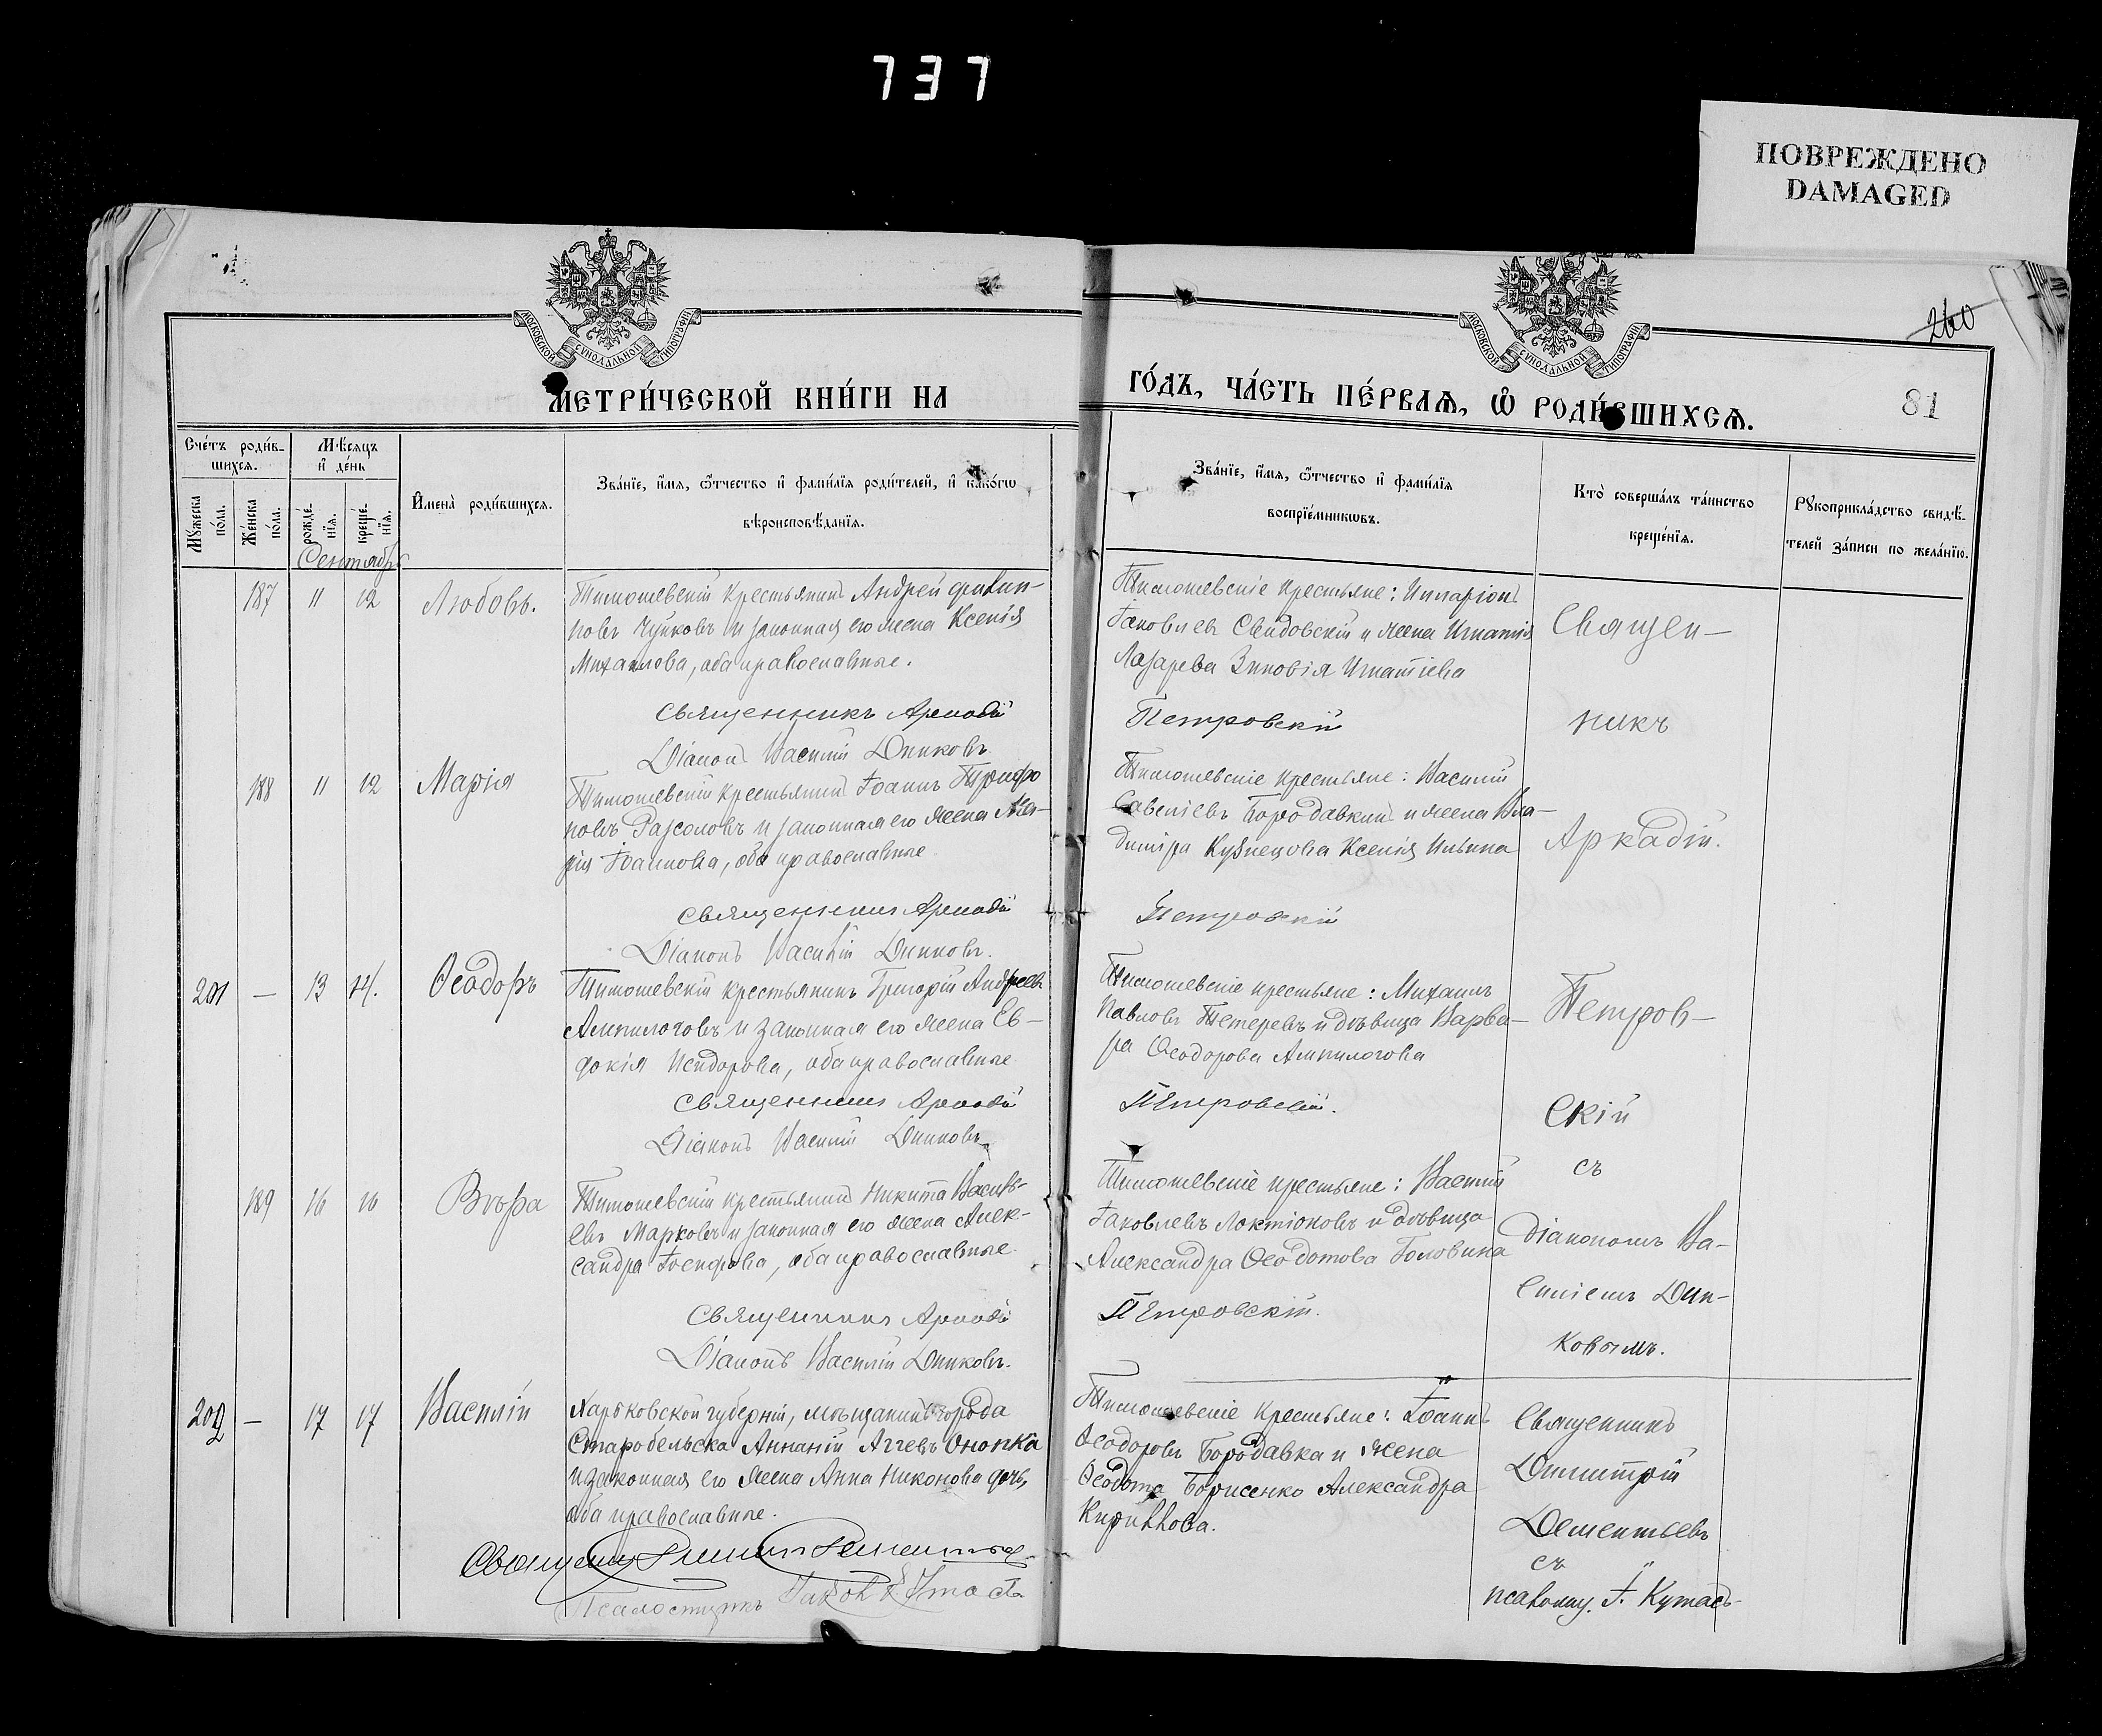 737
ПОВРЕЖДЕНО
DAMAGED
МОСКОВСКОЙ СѴНОДАЛЬНОЙ ТИПОГРАФІИ
МОСКОВСКОЙ СѴНОДАЛЬНОЙ ТИПОГРАФІИ
260
МЕТРИ́ЧЕСКОЙ КНИ́ГИ НА
ГО́ДЪ, ЧА́СТЬ ПЕ́РВАѦ, Ѽ РОДИ́ВШИХСѦ.
81
Сче́тъ роди́в-
шихсѧ.
Мѣ́сѧцъ
и҆ де́нь
Мꙋ́жеска
по́ла.
Же́нска
по́ла.
рожде́-
нїѧ.
креще́-
нїѧ.
И҆мена̀ роди́вшихсѧ.
Зва́нїе, и҆́мѧ, ѻ҆́тчество и҆ фами́лїѧ роди́телей, и҆ како́гѡ
вѣроисповѣ́данїѧ.
Зва́нїе, и҆́мѧ, ѻ҆́тчество и҆ фами́лїѧ
воспрїе́мникѡвъ.
Кто̀ соверша́лъ та́инство
креще́нїѧ.
Рꙋкоприкла́дство свидѣ́-
телей за́писи по жела́нїю.
Сентябрь
187 11 12 Любовь.
Тимошевскій крестьянинъ Андрей Филип-
повъ Чуйковъ и законная его жена Ксенія
Михаилова, оба православные.
Священникъ Аркадій
Діаконъ Василій Дынковъ
Тимошевскіе крестьяне: Илларіонъ
Іаковлевъ Свидовскій и жена Игнатія
Лазарева Зиновія Игнатіева
Петровскій
Священ-
никъ
188 11 12 Марія
Тимошевскій крестьянинъ Іоаннъ Трифо
новъ Разсоловъ и законная его жена
Іоаннова, оба православные.
Священникъ Аркадій
Діаконъ Василій Дынковъ.
Тимошевскіе крестьяне: Василій
Савеліевъ Бородавкинъ и жена Вла-
диміра Кузнецова Ксенія Ильина
Петровскій
Аркадій.
201 — 13 14. Ѳеодоръ
Тимошевскій крестьянинъ Григорій Андреевъ
Ампилоговъ и законная его жена Ев-
докія Исидорова, оба православные
Священникъ Аркадій
Діаконъ Василій Дынковъ
Тимошевскіе крестьяне: Михаилъ
Павловъ Тетеревъ и дѣвица Варва-
ра Ѳеодорова Ампилогова
Петровскій.
Петров-
скій
189 16 16 Вѣра
Тимошевскій крестьянинъ Никита Василь-
евъ Марковъ и законная его жена Алек-
сандра Іосифова, оба православные.
Священникъ Аркадій
Діаконъ Василій Дынковъ.
Тимошевскіе крестьяне: Василій
Іаковлевъ Локтіоновъ и дѣвица
Александра Ѳеодотова Головина
Петровскій.
съ
Діакономъ Ва-
силіемъ Дын-
ковымъ.
202 — 17 17 Василій
Харьковской губерніи, мѣщанинъ города
Старобельска Ананій Аггевъ Онопка
и законная его жена Анна Никонова дочь,
оба православные.
Псаломщикъ Іаковъ
Тимошевскіе крестьяне: Іоаннъ
Ѳеодоровъ Бородавка и жена
Ѳеодота Борисенко Александра
Кириллова.
Священникъ
Димитрій
Дементьевъ
съ
псаломщ. І. Кутасъ-